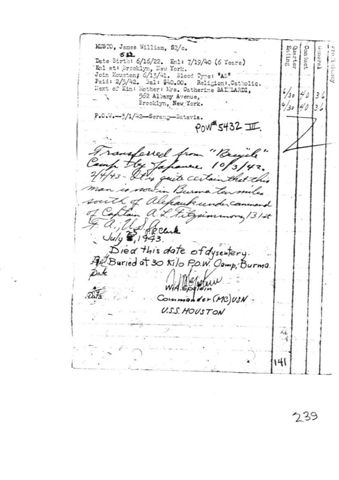 MUSTO, James William, S2/c.
Date Birth: 6/16/22. Enl: 7/19/40 (6 Years)
Enl at: Brooklyn, New York.
Join Houston: 6/13/41. Blood Type: "A2"
Paid: 2/5/42. Bal: $40.00. Religion: Catholic.
Next of Kin: Mother: Mrs. Catherine
562 Albany Avenue,
Brooklyn, New York.
P.O.W.--3/1/42--Serang--Batavia.
POW# 5432 III.
Transferred from "Bicycle"
Camp by Japanese 10/3/42.
2/4/43- It is quite certain that this
man is now in Burma ten miles
south of under command
of Captain A L Fitzsimmons, 131st
F. A., U.S.
July 1943.
Died this date of dysentery.
Buried at 30 Kilo P.O.W. Camp, Burma.
W.A. Epstein
Commander (MC) USN
U.S.S. HOUSTON
Rating
Quarter
Conduct
4/30 40 36
4/30 40 36
141
239